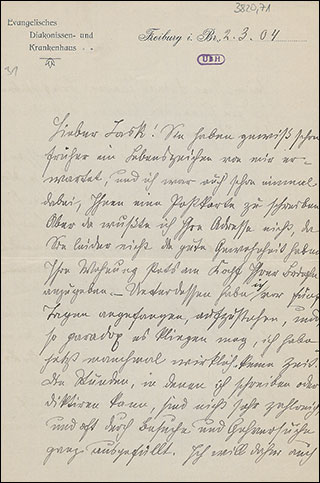 3820,71
Evangelisches
Diakonissen- und
Krankenhaus . .
Freiburg i. Br., 2.3.04
UBH
31
Lieber Lask! Sie haben gewiß schon
früher ein Lebenszeichen von mir er-
wartet, und ich war auch schon einmal
dabei, Ihnen eine Postkarte zu schreiben.
Aber da wußte ich Ihre Adresse nicht, da
Sie leider nicht die gute Gewohnheit haben,
Ihre Wohnung stets am Kopf Ihrer Briefe
anzugeben. – Unterdessen habe ich vor fünf
Tagen angefangen, aufzustehen, und
so paradox es klingen mag, ich habe
jetzt manchmal wirklich keine Zeit.
Die Stunden, in denen ich schreiben oder
diktieren kann, sind nicht sehr zahlreich
und oft durch Besuche und Gehversuche
ganz ausgefüllt. Ich will daher auch